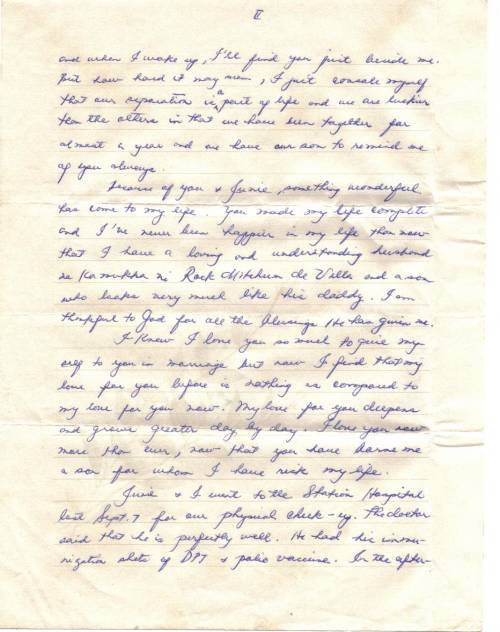 II
and when I wake up, I'll find you just beside me.
But how hard it may seem, I just console myself
that our separation is a part of life and we are luckier
than the others in that we have been together for
almost a year and we have our son to remind me
of you always.
Because of you & Junie, something wonderful
has come to my life. You made my life complete
and I've never been happier in my life than now
that I have a loving and understanding husband
na kamukha ni Rock Mitchum de Villa and a son
who looks very much like his daddy. I am
thankful to God for all the blessings He has given me.
I knew I love you so much to give my-
self to you in marriage but now I find that my
love for you before is nothing as compared to
my love for you now. My love for you deepens
and grows greater day by day. I love you now
more than ever, now that you have borne me
a son for whom I have risk my life.
Junie & I went to the Station Hospital
last Sept. 7 for our physical check-up. The doctor
said that he is perfectly well. He had his immu-
nization shots of DPT & polio vaccine. In the after-